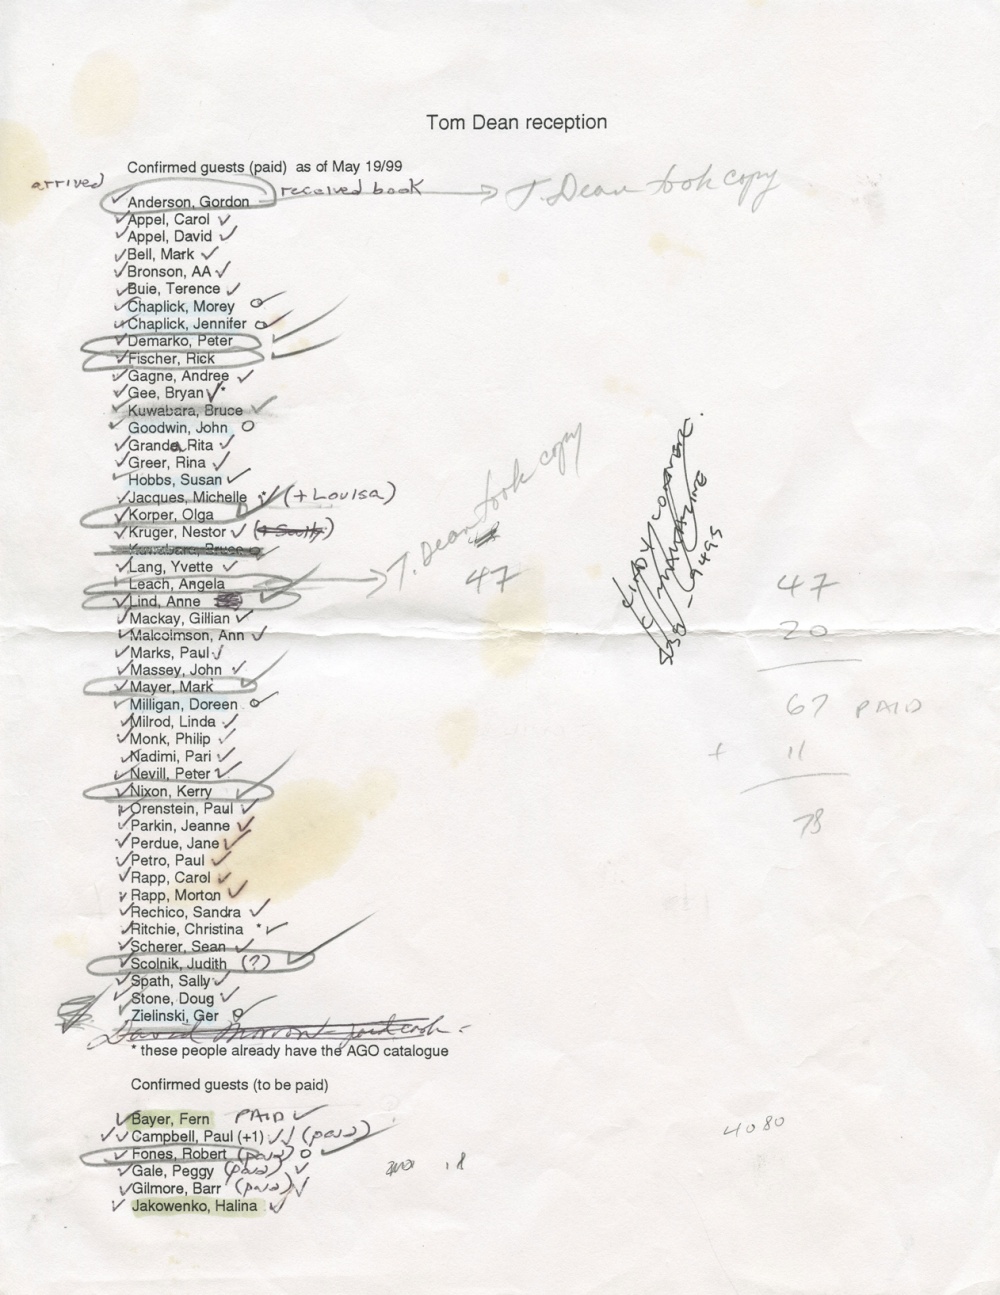 Tom Dean reception
Confirmed guests (paid) as of May 19/99
arrived
received book → T. Dean took copy
Anderson, Gordon
Appel, Carol
Appel, David
Bell, Mark
Bronson, AA
Buie, Terence
Chaplick, Morey
Chaplick, Jennifer
Demarko, Peter
Fischer, Rick
Gagne, Andree
Gee, Bryan *
Kuwabara, Bruce
Goodwin, John
Grande, Rita
Greer, Rina
Hobbs, Susan
Jacques, Michelle * (+ Louisa)
Korper, Olga
Kruger, Nestor
Kuwabara, Bruce
Lang, Yvette
Leach, Angela → T. Dean took copy
Lind, Anne
Mackay, Gillian
Malcolmson, Ann
Marks, Paul
Massey, John
Mayer, Mark
Milligan, Doreen
Milrod, Linda
Monk, Philip
Nadimi, Pari
Nevill, Peter
Nixon, Kerry
Orenstein, Paul
Parkin, Jeanne
Perdue, Jane
Petro, Paul
Rapp, Carol
Rapp, Morton
Rechico, Sandra
Ritchie, Christina *
Scherer, Sean
Scolnik, Judith (?)
Spath, Sally
Stone, Doug
Zielinski, Ger
David
* these people already have the AGO catalogue
Confirmed guests (to be paid)
Bayer, Fern PAID
Campbell, Paul (+1) (paid)
Fones, Robert (paid)
Gale, Peggy (paid)
Gilmore, Barr (paid)
Jakowenko, Halina
47
MAGAZINE
47
20
67 PAID
+ 11
78
4080